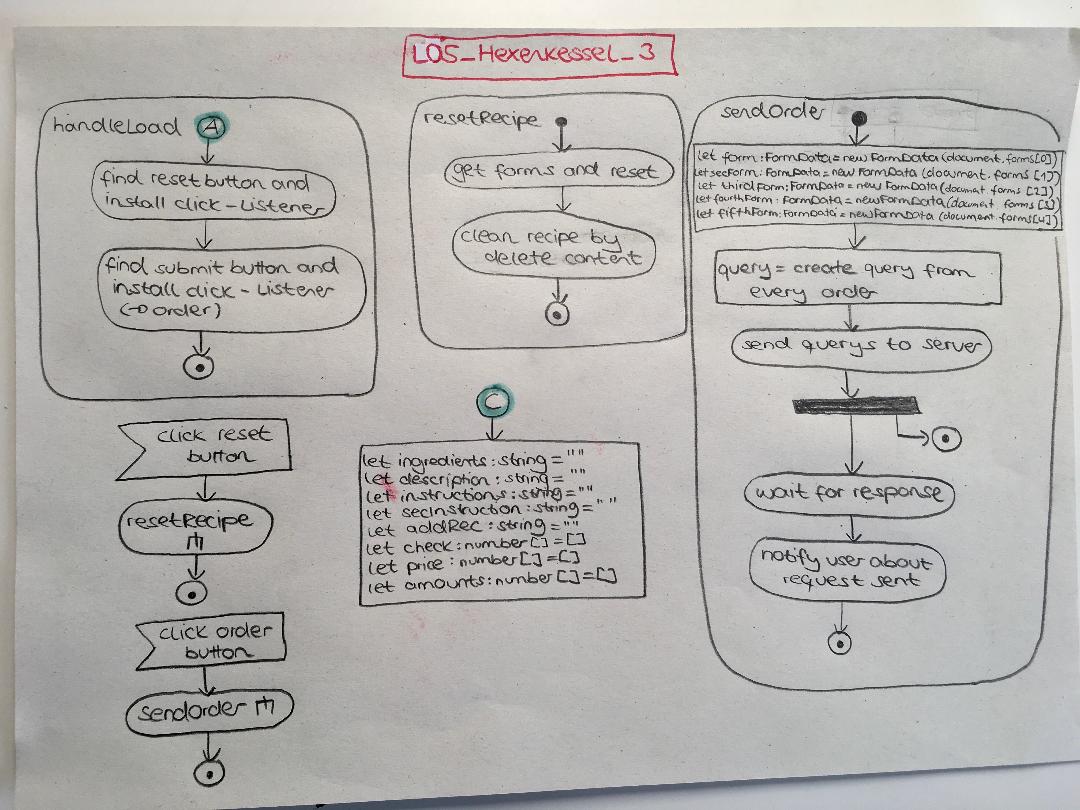 L05_Hexenkessel_3
handleLoad A
find reset button and
install click-Listener
find submit button and
install click-Listener
(→order)
click reset
button
resetRecipe
click order
button
sendOrder
resetRecipe
get forms and reset
clean recipe by
delete content
C
let ingredients:string=""
let description:string=""
let instructions:string=""
let secInstruction:string=""
let addRec:string=""
let check:number[]=[]
let price:number[]=[]
let amounts:number[]=[]
sendOrder
let form:FormData=new FormData(document.forms[0])
let secForm:FormData=new FormData(document.forms[1])
let thirdForm:FormData=new FormData(document.forms[2])
let fourthForm:FormData=new FormData(document.forms[3])
let fifthForm:FormData=new FormData(document.forms[4])
query=create query from
every order
send querys to server
wait for response
notify user about
request sent